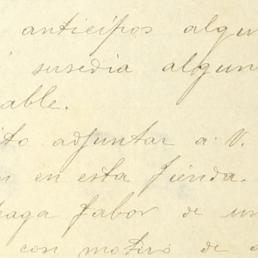 anticipos algu
susedia algun
able.
ito adjuntar a V.
en esta tienda.
haga fabor de un
con motivo de a